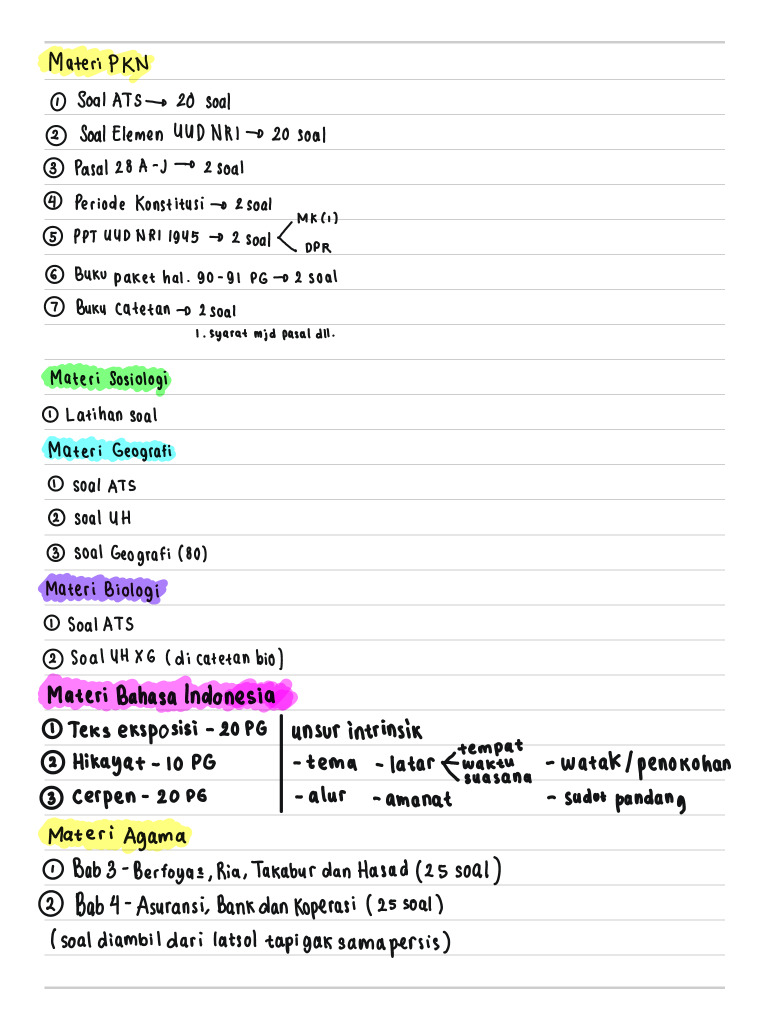 Materi PKN
① Soal ATS → 20 soal
② Soal Elemen UUD NRI → 20 soal
③ Pasal 28 A-J → 2 soal
④ Periode Konstitusi → 2 soal
MK (1)
⑤ PPT UUD NRI 1945 → 2 soal
DPR
⑥ Buku paket hal. 90-91 PG → 2 soal
⑦ Buku catetan → 2 soal
1. syarat mjd pasal dll.
Materi Sosiologi
① Latihan soal
Materi Geografi
① soal ATS
② soal UH
③ soal Geografi (80)
Materi Biologi
① Soal ATS
② Soal UH X6 (di catetan bio)
Materi Bahasa Indonesia
① Teks eksposisi - 20 PG
② Hikayat - 10 PG
③ Cerpen - 20 PG
unsur intrinsik
- tema - latar tempat waktu suasana - watak/penokohan
- alur - amanat - sudot pandang
Materi Agama
① Bab 3 - Berfoyas, Ria, Takabur dan Hasad (25 soal)
② Bab 4 - Asuransi, Bank dan Koperasi (25 soal)
(soal diambil dari latsol tapi gak sama persis)